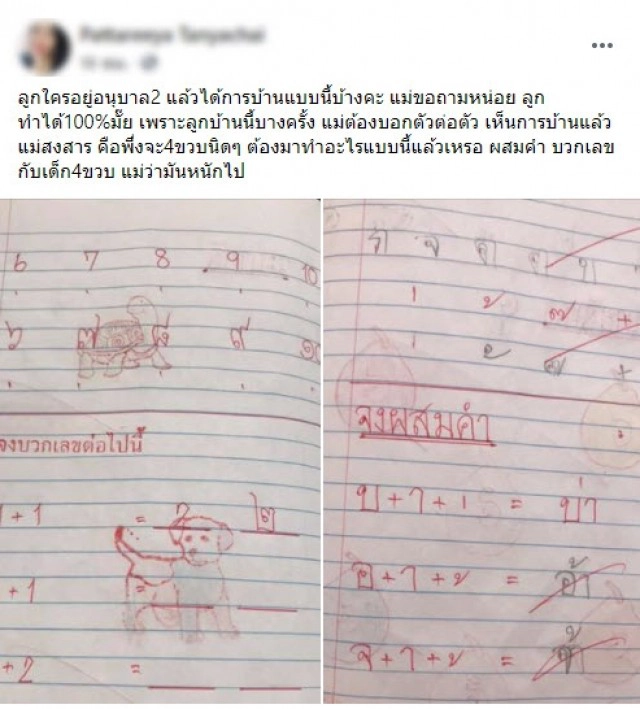 ลูกใครอยู่อนุบาล2 แล้วได้การบ้านแบบนี้บ้างคะ แม่ขอถามหน่อย ลูก
ทำได้100%มั๊ย เพราะลูกบ้านนี้บางครั้ง แม่ต้องบอกตัวต่อตัว เห็นการบ้านแล้ว
แม่สงสาร คือพึ่งจะ4ขวบนิดๆ ต้องมาทำอะไรแบบนี้แล้วเหรอ ผสมคำ บวกเลข
กับเด็ก4ขวบ แม่ว่ามันหนักไป
6 7 8 9 10
๖ ๗ ๘ ๙ ๑๐
จงบวกเลขต่อไปนี้
1 + 1 = 2 ๒
+ 1 =
+ 2 =
่ ้ ๊ +
่ ้ ๊ +
จงผสมคำ
บ + า + ่ = บ่า
อ + า + ้ = อ้า
จ + า + ้ = จ้า